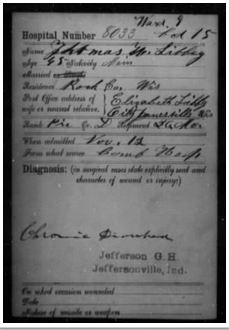 Ward 9
Hospital Number 8033 Bed 15
Name Thomas W. Libbey
Age 45 Nativity
Married or Single
Residence Rock Co. Wis
Post Office address of
wife or nearest relative, Elizabeth
City Janesville Wis
Rank Co. D Regiment
When admitted Nov. 12
From what source
Diagnosis: (in surgical cases state explicitly seat and
character of wound or injury)
Chronic
Jefferson G. H.
Jeffersonville, Ind.
On what occasion wounded
Date
Nature of missile or weapon